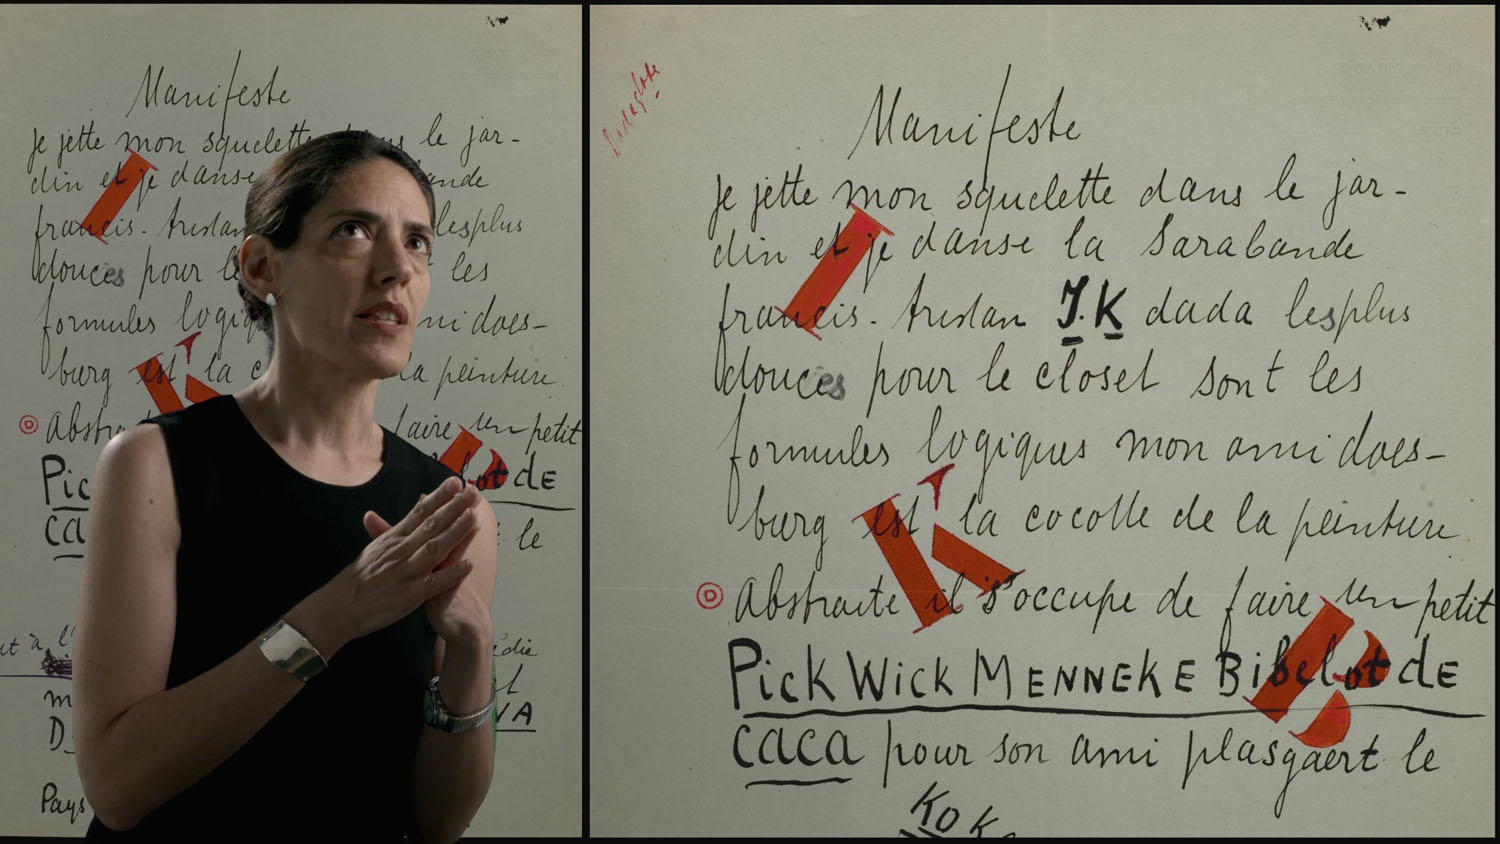 Manifeste
je jette mon squelette dans le jar-
din et je danse
francis. tristan lesplus
douces pour le les
formules logiq mon ami does-
burg est la c la peinture
Abstra faire un petit
Pic Bibelot de
ca le
m
D VA
Pays
Dadaglobe
Manifeste
je jette mon squelette dans le jar-
din et je danse la Sarabande
francis. tristan I.K dada lesplus
douces pour le closet sont les
formules logiques mon ami does-
burg est la cocotte de la peinture
D Abstraite il s'occupe de faire un petit
PicK WicK MENNEKE Bibelot de
caca pour son ami plasgaert le
KOK
I
K
B